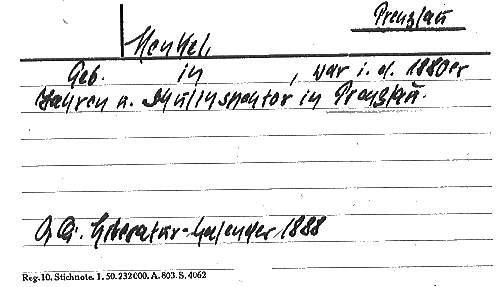 Prenzlau
Henkel,
Geb. in , war i. d. 1880er
Jahren n. Schulinspektor in Prenzlau.
Literatur-Kalender 1888
Reg. 10. Stichnote. 1. 50. 232000. A. 803. S. 4062